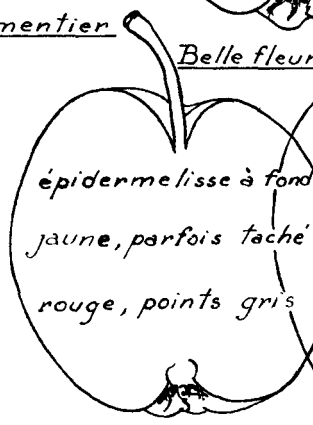 mentier
Belle fleur
épiderme lisse à fond
jaune, parfois taché
rouge, points gris